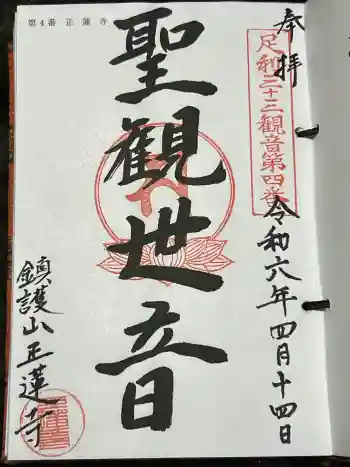 奉拝
足利三十三観音第四番
令和六年四月十四日
聖観世音
第4番 正蓮寺
鎮護山正蓮寺